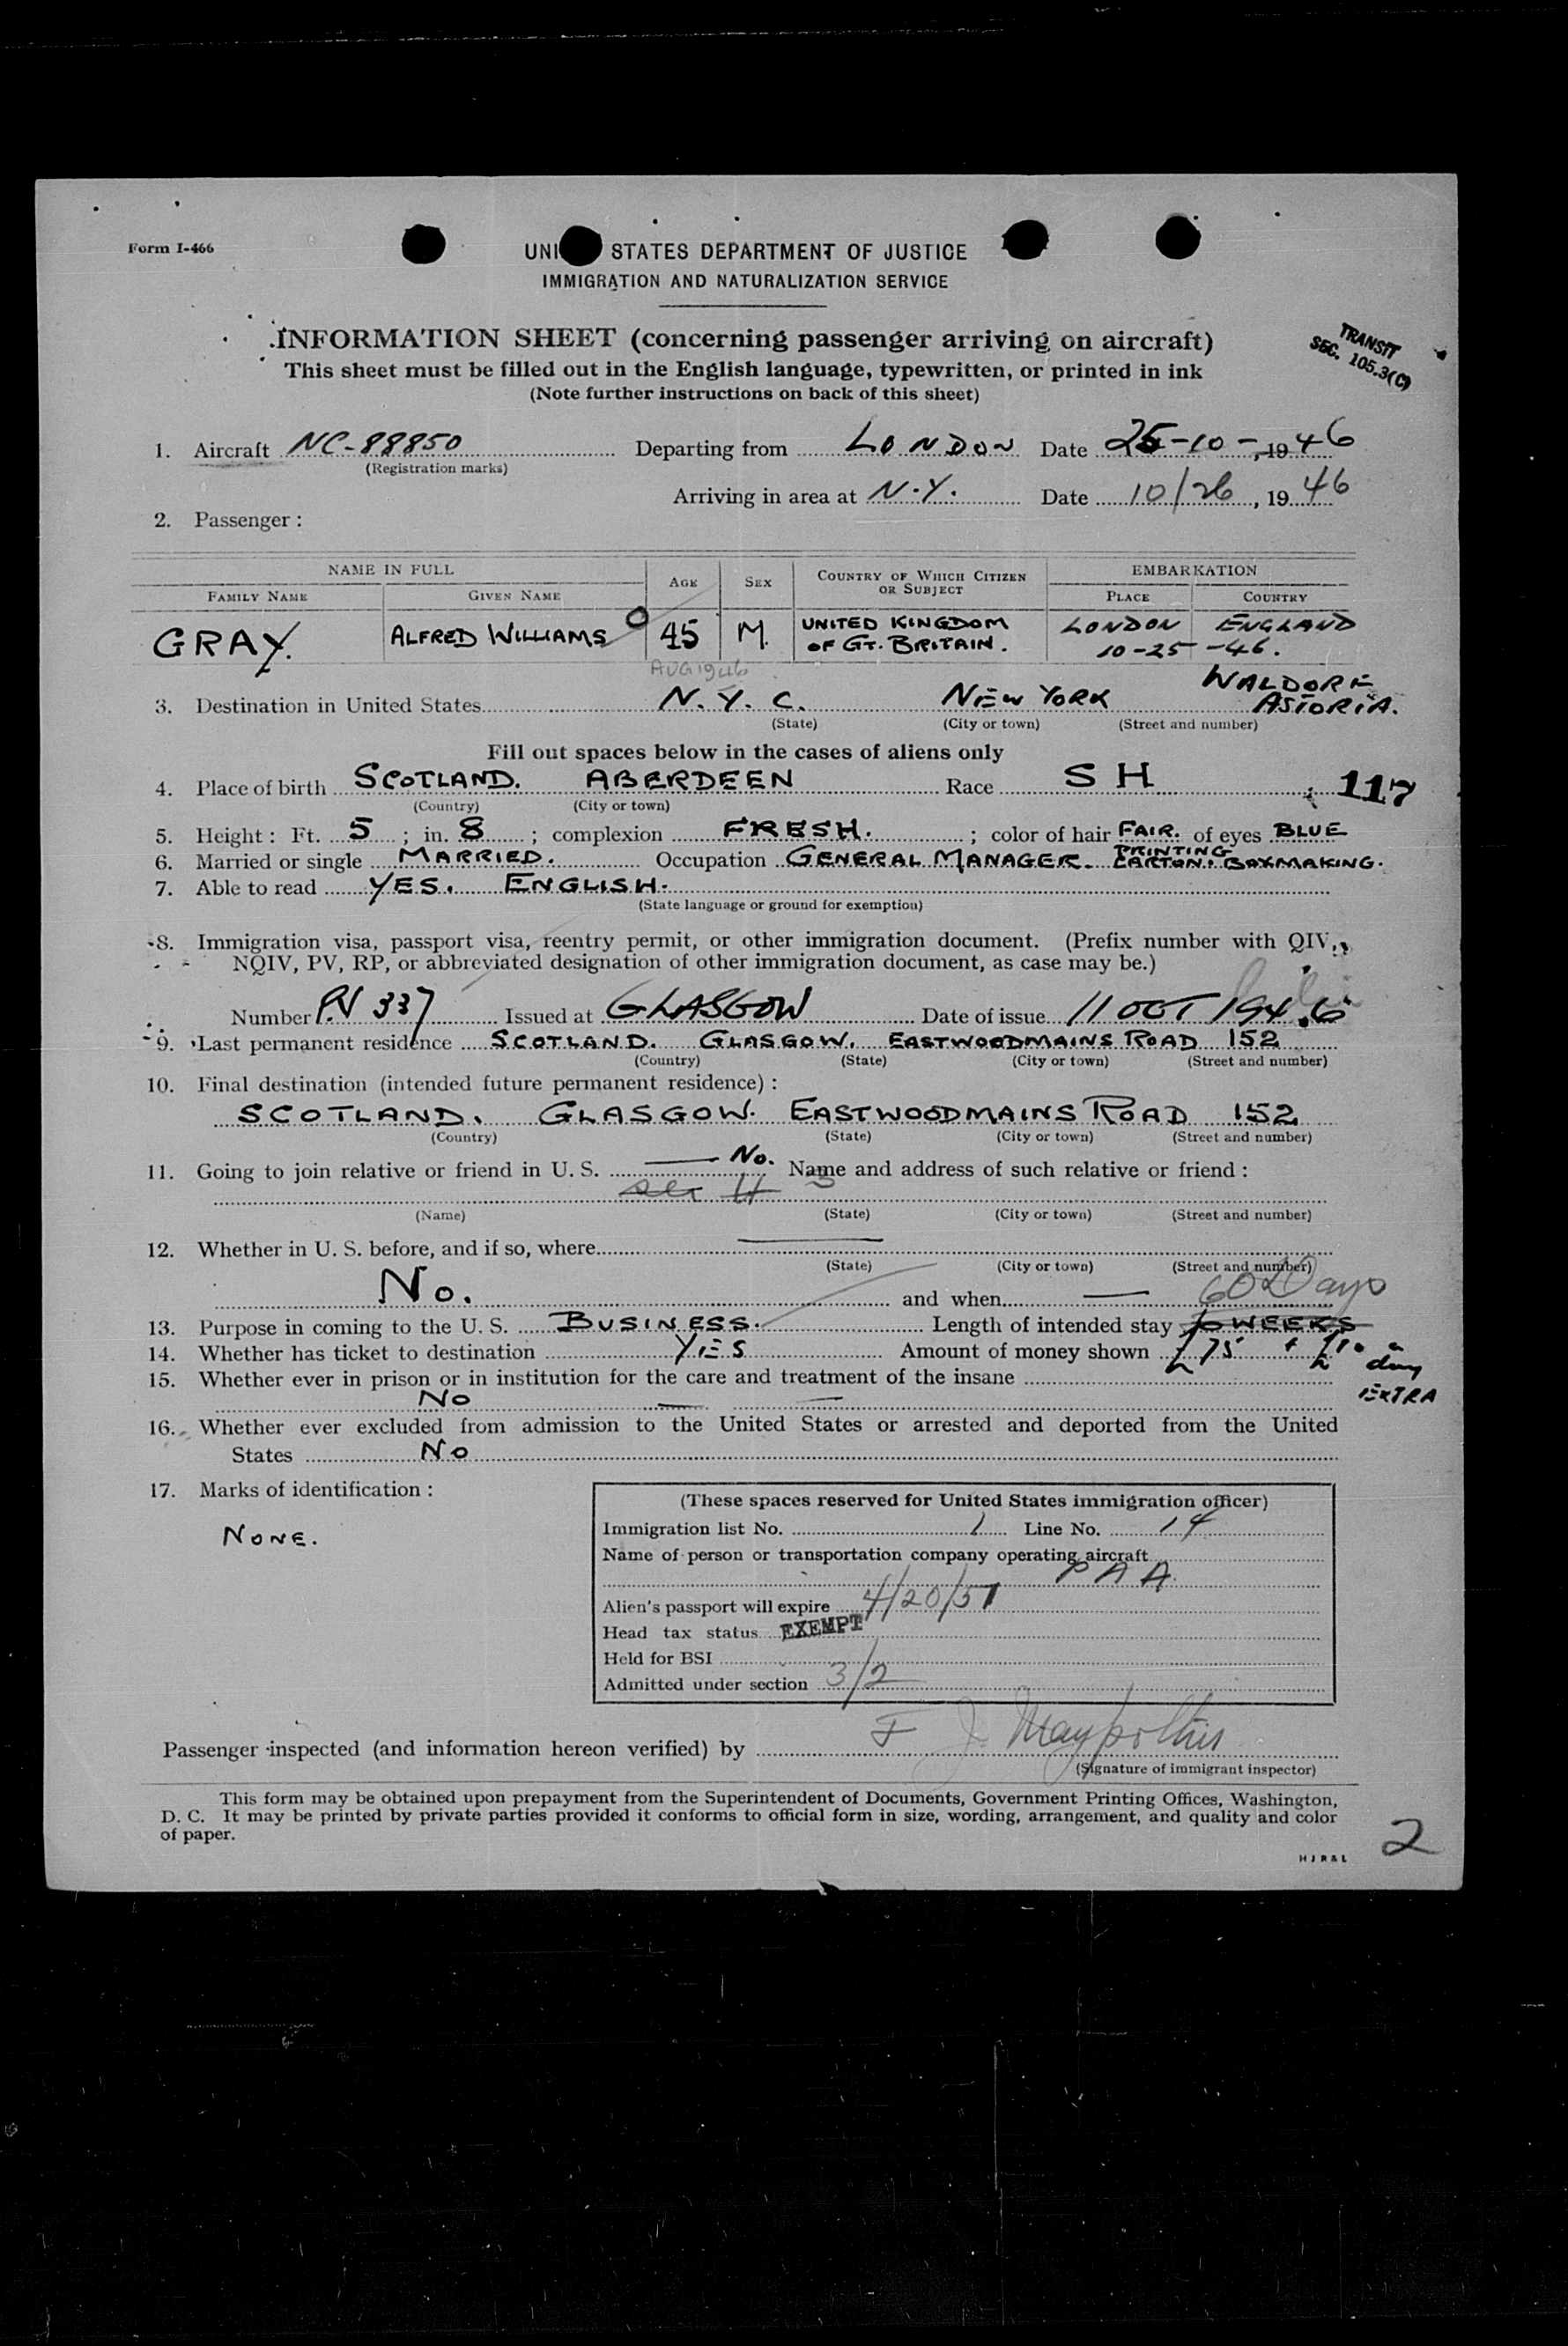 Form I-466
UNI STATES DEPARTMENT OF JUSTICE
IMMIGRATION AND NATURALIZATION SERVICE
INFORMATION SHEET (concerning passenger arriving on aircraft)
TRANSIT
SEC. 105.3(C)
This sheet must be filled out in the English language, typewritten, or printed in ink
(Note further instructions on back of this sheet)
1. Aircraft NC-88850 Departing from LONDON Date 25-10-, 1946
(Registration marks)
Arriving in area at N.Y. Date 10/26, 1946
2. Passenger :
NAME IN FULL AGE SEX COUNTRY OF WHICH CITIZEN OR SUBJECT EMBARKATION
FAMILY NAME GIVEN NAME PLACE COUNTRY
GRAY. ALFRED WILLIAMS 45 M. UNITED KINGDOM OF GT. BRITAIN. LONDON ENGLAND
10-25-46.
AUG 1946
WALDORF
3. Destination in United States N.Y.C. NEW YORK ASTORIA.
(State) (City or town) (Street and number)
Fill out spaces below in the cases of aliens only
4. Place of birth SCOTLAND. ABERDEEN Race SH 117
(Country) (City or town)
5. Height : Ft. 5 ; in. 8 ; complexion FRESH. ; color of hair FAIR. of eyes BLUE
6. Married or single MARRIED. Occupation GENERAL MANAGER. PRINTING CARTON. BOXMAKING.
7. Able to read YES. ENGLISH.
(State language or ground for exemption)
8. Immigration visa, passport visa, reentry permit, or other immigration document. (Prefix number with QIV,
NQIV, PV, RP, or abbreviated designation of other immigration document, as case may be.)
Number P.V 337 Issued at GLASGOW Date of issue 11 OCT 1946
9. Last permanent residence SCOTLAND. GLASGOW. EASTWOODMAINS ROAD 152
(Country) (State) (City or town) (Street and number)
10. Final destination (intended future permanent residence) :
SCOTLAND. GLASGOW. EASTWOODMAINS ROAD 152
(Country) (State) (City or town) (Street and number)
11. Going to join relative or friend in U. S. No. Name and address of such relative or friend :
(Name) (State) (City or town) (Street and number)
12. Whether in U. S. before, and if so, where
(State) (City or town) (Street and number)
No. and when — 60 Days
13. Purpose in coming to the U. S. BUSINESS. Length of intended stay WEEKS
14. Whether has ticket to destination YES Amount of money shown £75 + £10 a day
EXTRA
15. Whether ever in prison or in institution for the care and treatment of the insane
No
16. Whether ever excluded from admission to the United States or arrested and deported from the United
States No
17. Marks of identification :
NONE.
(These spaces reserved for United States immigration officer)
Immigration list No. 1 Line No. 14
Name of person or transportation company operating aircraft
PAA
Alien's passport will expire 4/20/51
Head tax status EXEMPT
Held for BSI
Admitted under section 3/2
Passenger inspected (and information hereon verified) by F J.
(Signature of immigrant inspector)
This form may be obtained upon prepayment from the Superintendent of Documents, Government Printing Offices, Washington,
D. C. It may be printed by private parties provided it conforms to official form in size, wording, arrangement, and quality and color
of paper.
2
H J R & L